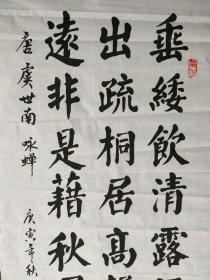 垂緌飲清露
出疏桐居高
遠非是藉秋
唐虞世南咏蝉
庚寅年秋